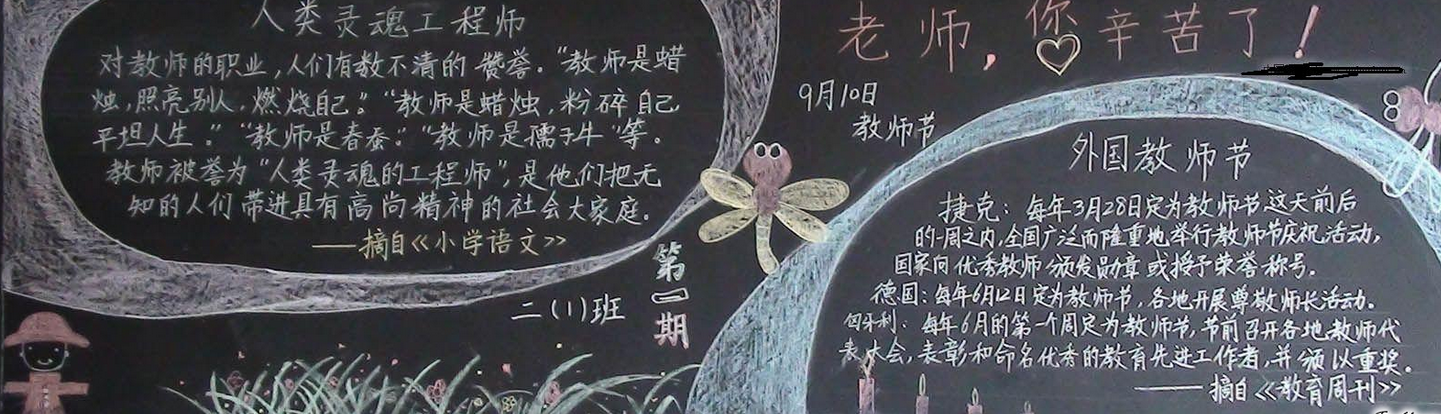 人类灵魂工程师
对教师的职业，人们有数不清的赞誉。“教师是蜡
烛，照亮别人，燃烧自己。”“教师是蜡烛，粉碎自己
平坦人生。”“教师是春蚕。”“教师是孺子牛”等。
教师被誉为“人类灵魂的工程师”，是他们把无
知的人们带进具有高尚精神的社会大家庭。
——摘自《小学语文》
二(1)班
第一期
老师，你辛苦了！
9月10日
教师节
外国教师节
捷克：每年3月28日定为教师节，这天前后
的一周之内，全国广泛而隆重地举行教师节庆祝活动，
国家向优秀教师颁发勋章或授予荣誉称号。
德国：每年6月12日定为教师节，各地开展尊敬师长活动。
匈牙利：每年6月的第一个周定为教师节，节前召开各地教师代
表大会，表彰和命名优秀的教育先进工作者，并颁以重奖。
——摘自《教育周刊》